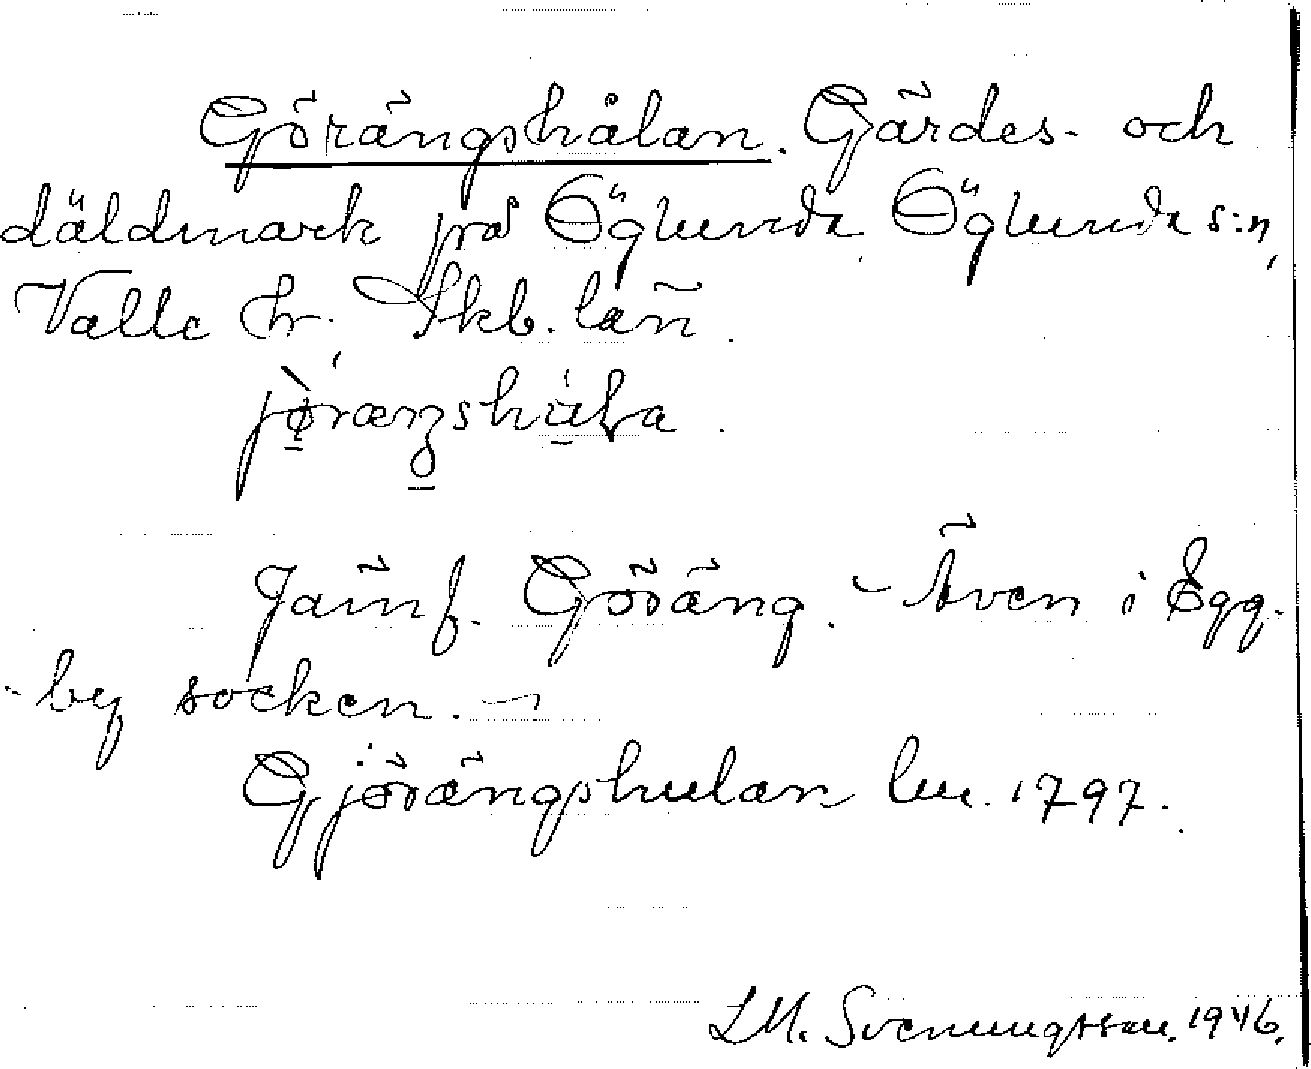 Görängshålan. Gärdes- och
däldmark på Öglunda Öglunda s:n,
Valle hr. Skb. län.
Jämf. Göräng. - Även i Egg-
-by socken. -
Gjörängshulan lm. 1797.
LM. Svenungsson. 1946.